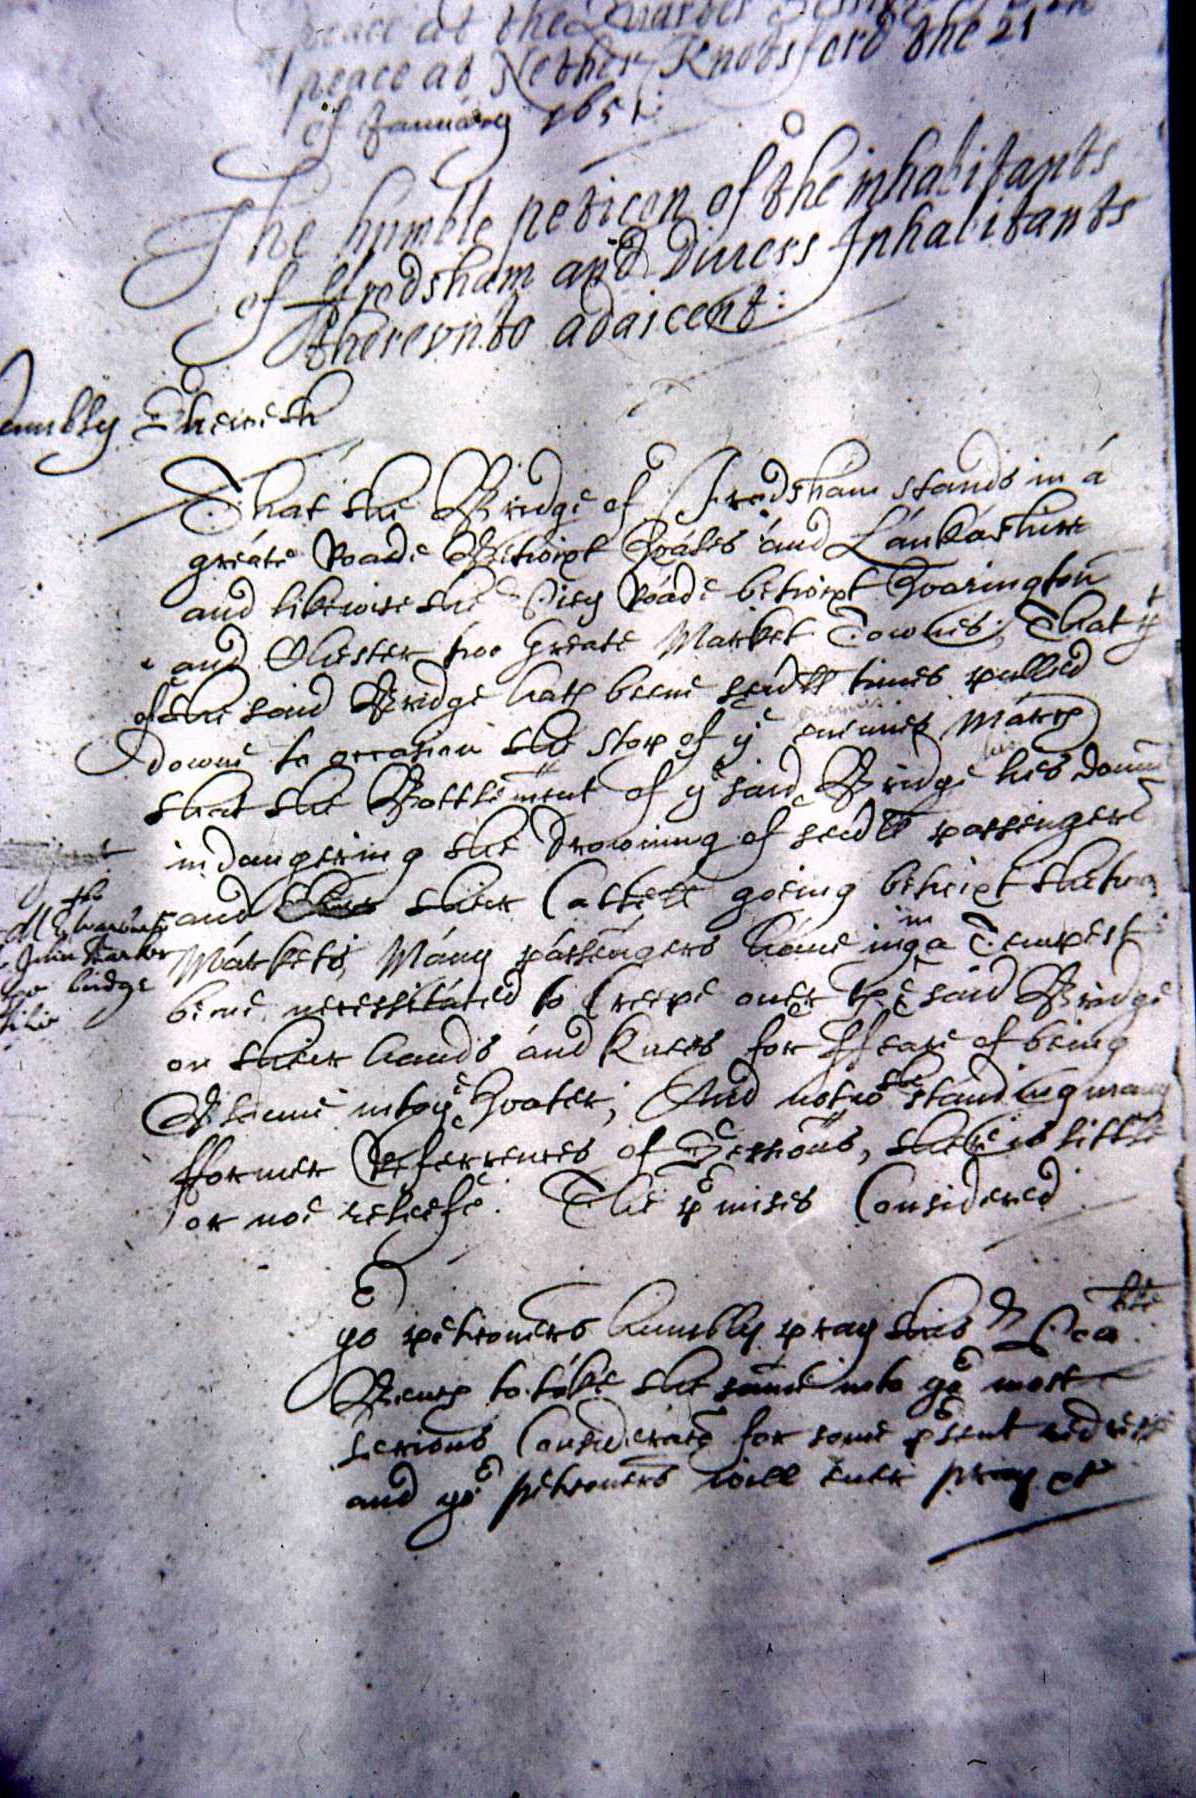 peace at the Quarter Sessions
peace at Nether Knotsford the 21
of January 1651:
The humble peticon of the inhabitants
of ffrodsham and Diuers Inhabitants
therevnto adaicent:
humbly Sheweth
That the Bridge of ffrodsham stands in a
greate Roade Betwixt Wales and Lankashire
and likewise the Roade betwixt Warington
and Chester two Greate Market Townes; That pt
of the said Bridge hath beene seu'll times pulled
downe to occasion the stop of ye enimies March
that the Battlement of ye said Bridge lies downe
indangering the drowning of seu'll passengers
and their Cattell goeing betwixt the two
Markets; Many passengers haue in a Tempest
beene necessitated to Creepe ouer the said Bridge
on their hands and knees for ffeare of being
Blowne into ye Water; And notwthstanding many
fformer Referrences of Sessions, there is little
or noe releefe. The pmises Considered
yor petioners humbly pray this Wor
Bench to take the same into yor most
serious Consideracon for some psent redresse
and yor petioners will euer pray &c
the
John
bridge